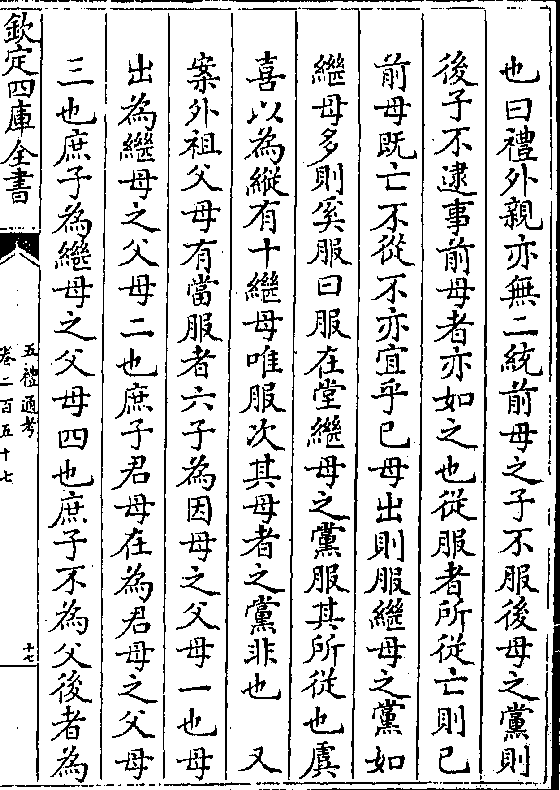 也曰禮外親亦無二統前母之子不服後母之黨則
後子不逮事前母者亦如之也從服者所從亡則已
前母既亡不從不亦宜乎已母出則服繼母之黨如
繼母多則奚服曰服在堂繼母之黨服其所從也虞
喜以為縱有十繼母唯服次其母者之黨非也　又
案外祖父母有當服者六子為因母之父母一也母
出為繼母之父母二也庶子君母在為君母之父母
三也庶子為繼母之父母四也庶子不為父後者為
欽定四庫全書
五禮通考
卷二百五十七
十七